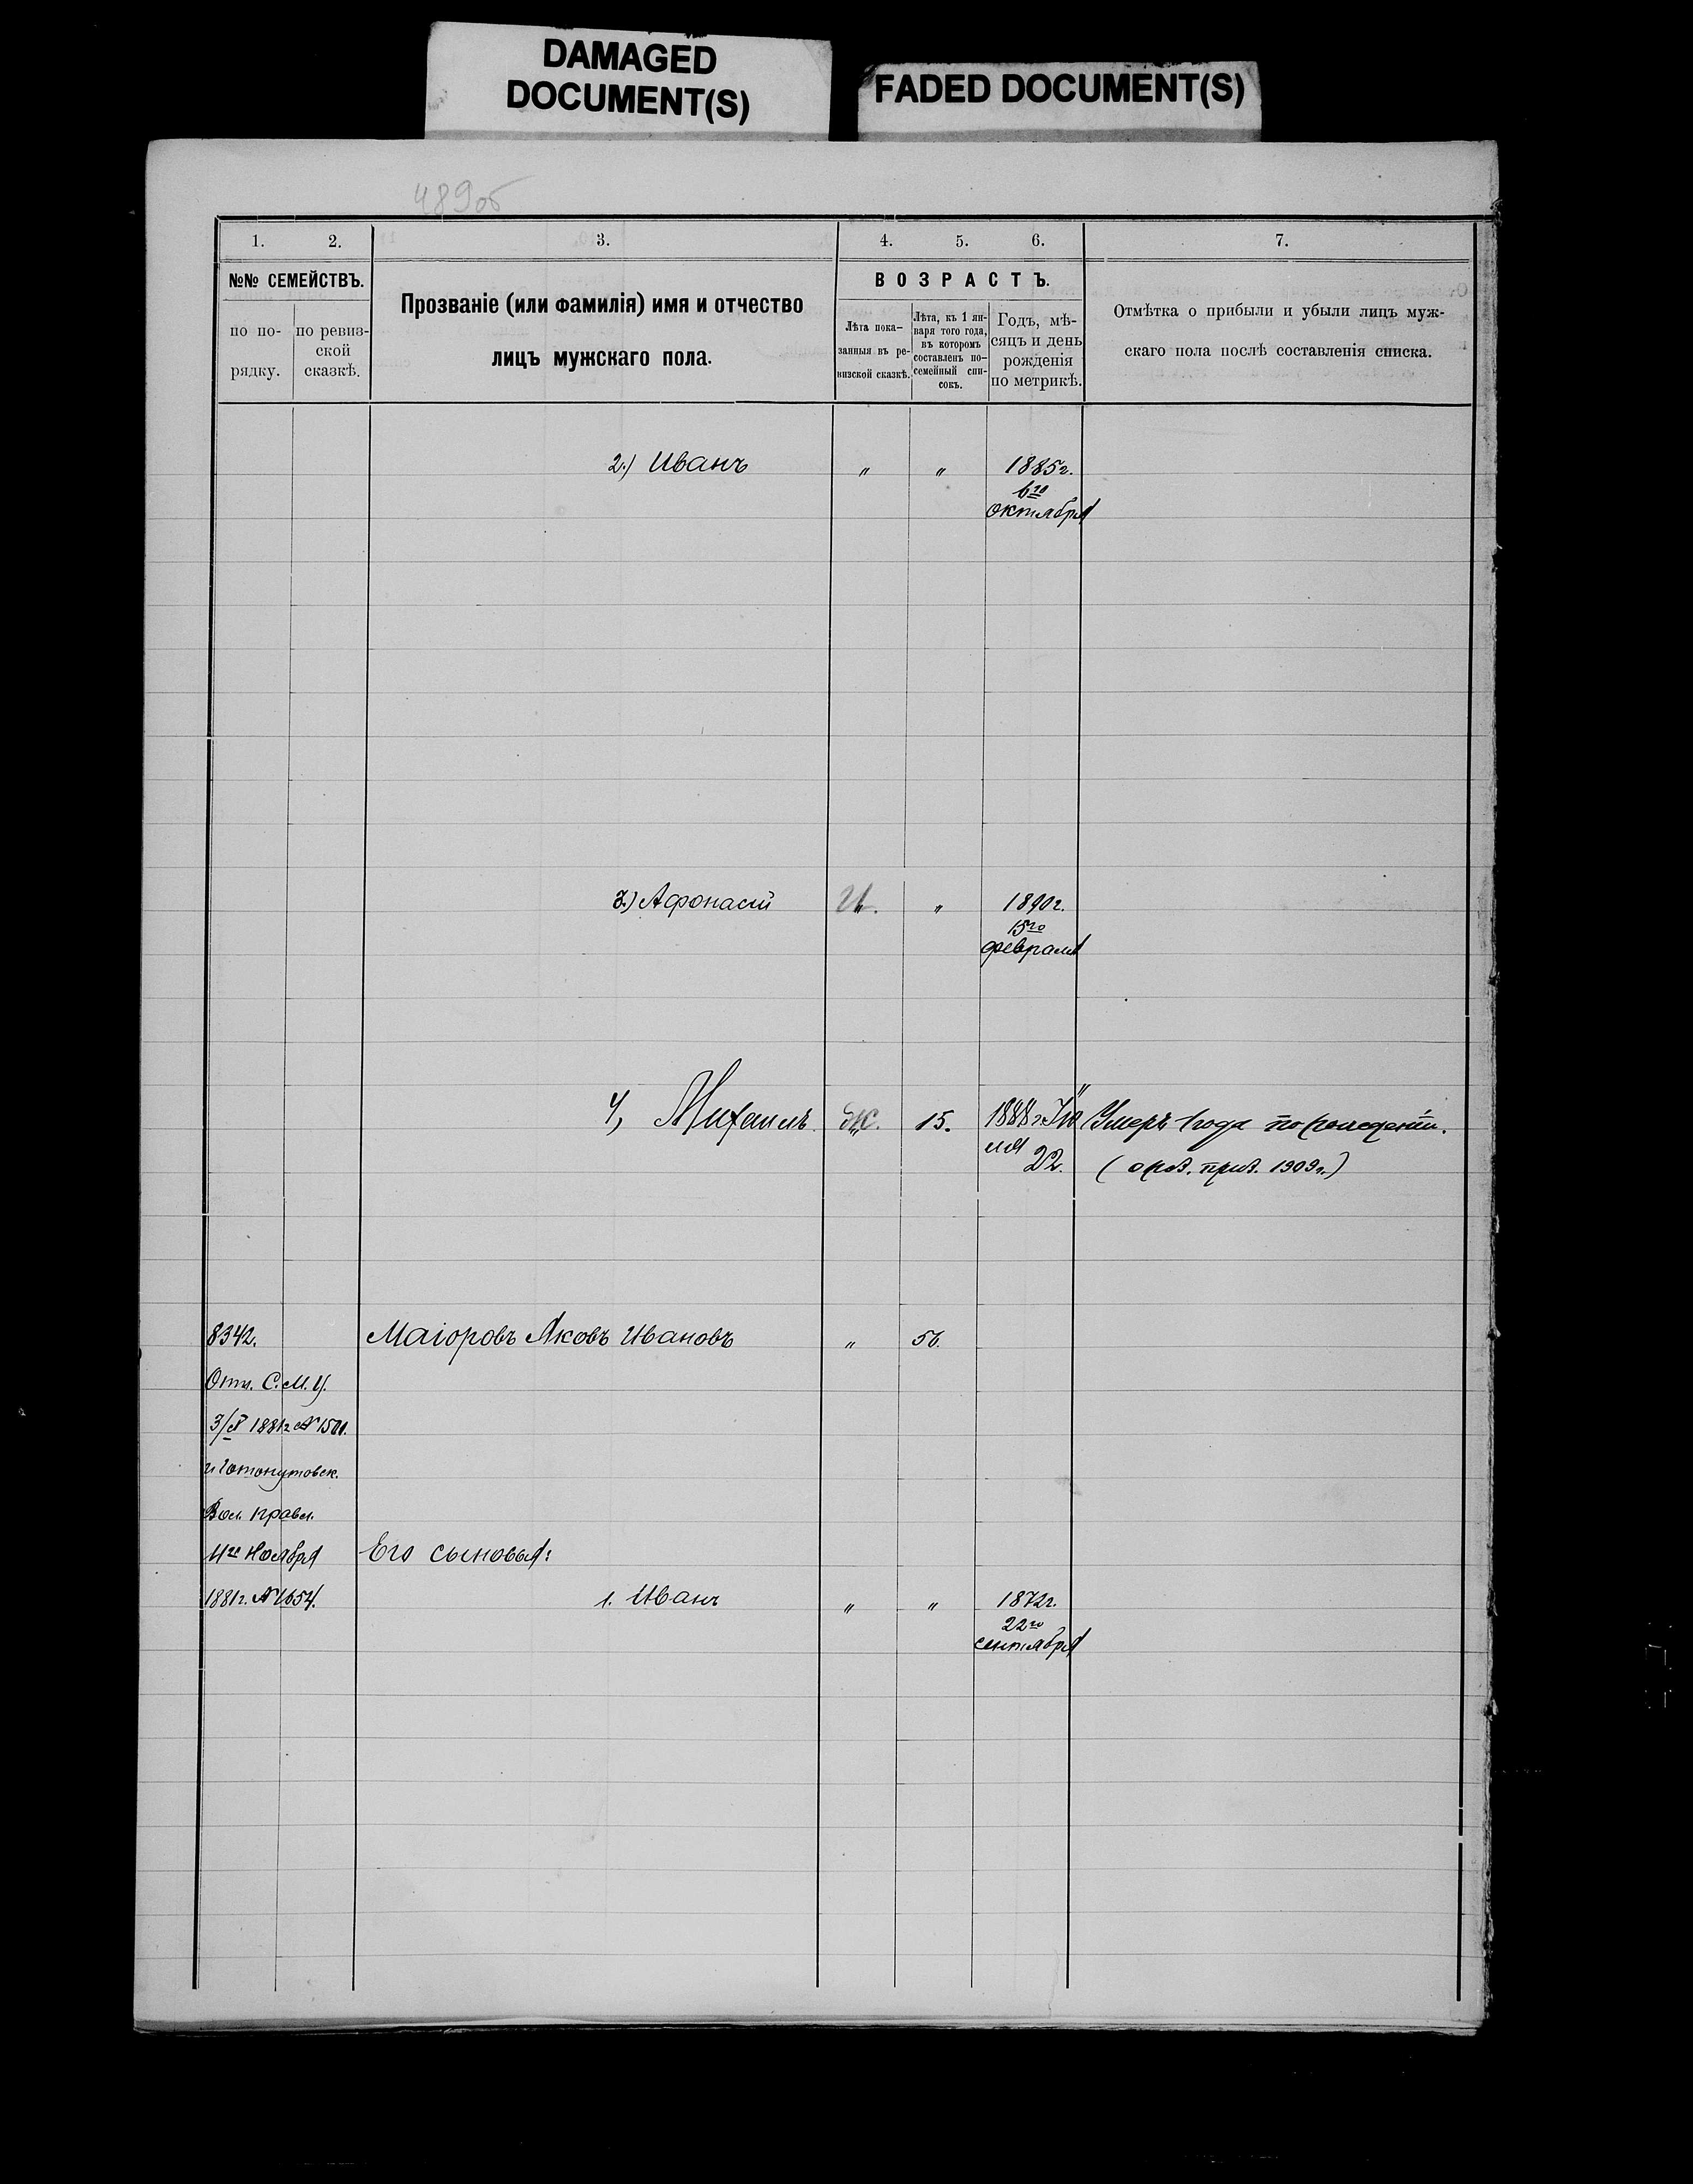 DAMAGED
DOCUMENT(S)
FADED DOCUMENT(S)
489об
1. 2. 3. 4. 5. 6. 7.
№№ СЕМЕЙСТВЪ.
по по-
рядку.
по ревиз-
ской
сказкѣ.
Прозваніе (или фамилія) имя и отчество
лицъ мужскаго пола.
ВОЗРАСТЪ.
Лѣта пока-
занныя въ ре-
визской сказкѣ.
Лѣта, къ 1 ян-
варя того года,
въ которомъ
составленъ по-
семейный спи-
сокъ.
Годъ, мѣ-
сяцъ и день
рожденія
по метрикѣ.
Отмѣтка о прибыли и убыли лицъ муж-
скаго пола послѣ составленія списка.
2.) Иванъ " " 1885г.
6го
октября
3.) Афонасій " 1890г.
15го
февраля
4, Михаилъ 15. 1888г. Iю Умеръ 1 года по
ля 22. ( прив. 1909г.)
8342. Маіоровъ Яковъ Ивановъ " 56.
Отн. С. М. У.
3/X 1881г №1501.
Вол. Правл.
4го Ноября Его сыновья:
1881г. №1654. 1. Иванъ " " 1872г.
22го
сентября